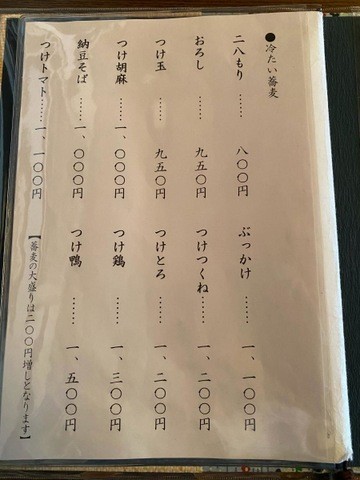 ●冷たい蕎麦
二八もり……八〇〇円
おろし……九五〇円
つけ玉……九五〇円
つけ胡麻……一、〇〇〇円
納豆そば……一、〇〇〇円
つけトマト……一、一〇〇円
ぶっかけ……一、一〇〇円
つけつくね……一、二〇〇円
つけとろ……一、二〇〇円
つけ鶏……一、三〇〇円
つけ鴨……一、五〇〇円
【蕎麦の大盛りは二〇〇円増しとなります】